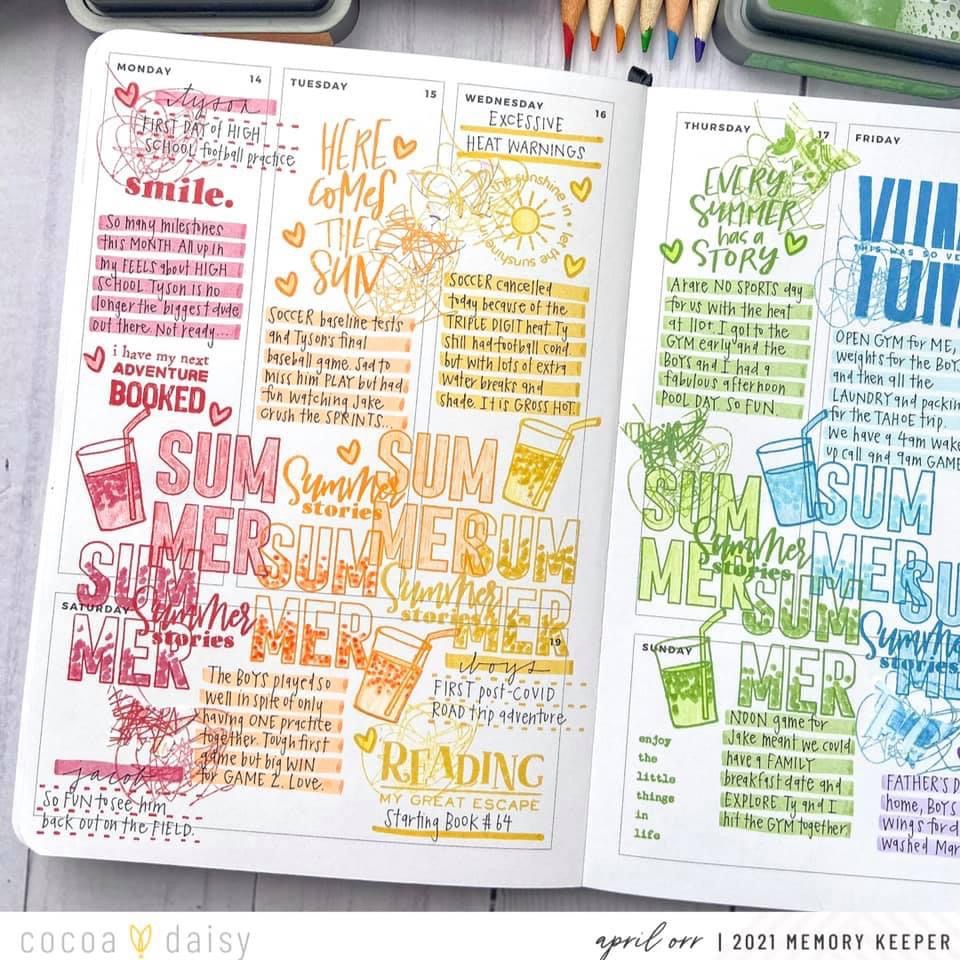 MONDAY 14
tyson
FIRST DAY of HIGH
SCHOOL football practice
smile.
So many milestones
this MONTH. All up in
my FEELS about HIGH
SCHOOL. Tyson is no
longer the biggest dude
out there. Not ready...
i have my next
ADVENTURE
BOOKED
SUM
MER
SUM
MER
Summer
stories
TUESDAY 15
HERE
COMES
THE
SUN
SOCCER baseline tests
and Tyson's final
baseball game. Sad to
miss him PLAY but had
fun watching Jake
crush the SPRINTS...
Summer
stories
SUM
MER
SUM
MER
WEDNESDAY 16
EXCESSIVE
HEAT WARNINGS
let the sunshine in
the sunshine in
SOCCER cancelled
today because of the
TRIPLE DIGIT heat. Ty
still had football cond.
but with lots of extra
water breaks and
shade. It is GROSS HOT.
SUM
MER
Summer
stories
SATURDAY
jacob
So FUN to see him
back out on the FIELD.
The BOYS played so
well in spite of only
having ONE practice
together. Tough first
game but big WIN
for GAME 2. Love.
19
boys
FIRST post-COVID
ROAD trip adventure
READING
MY GREAT ESCAPE
Starting Book #64
THURSDAY 17
EVERY
SUMMER
has a
STORY
A rare NO SPORTS day
for us with the heat
at 110t. I got to the
GYM early and the
BOYS and I had a
fabulous afternoon
POOL DAY. SO FUN.
SUM
MER
Summer
stories
SUM
MER
FRIDAY
YUM
THIS WAS SO VE
YUM
OPEN GYM for ME,
weights for the BOYS
and then all the
LAUNDRY and packin
for the TAHOE trip.
We have a 4am wake
up call and 9am GAME
SUM
MER
SU
ME
Summer
stories
SUNDAY
enjoy
the
little
things
in
life
NOON game for
Jake meant we could
have a FAMILY
breakfast date and
EXPLORE. Ty and I
hit the GYM together
FATHER'S D
home, BOYS
wings for d
washed Mar
cocoa daisy
april orr | 2021 MEMORY KEEPER